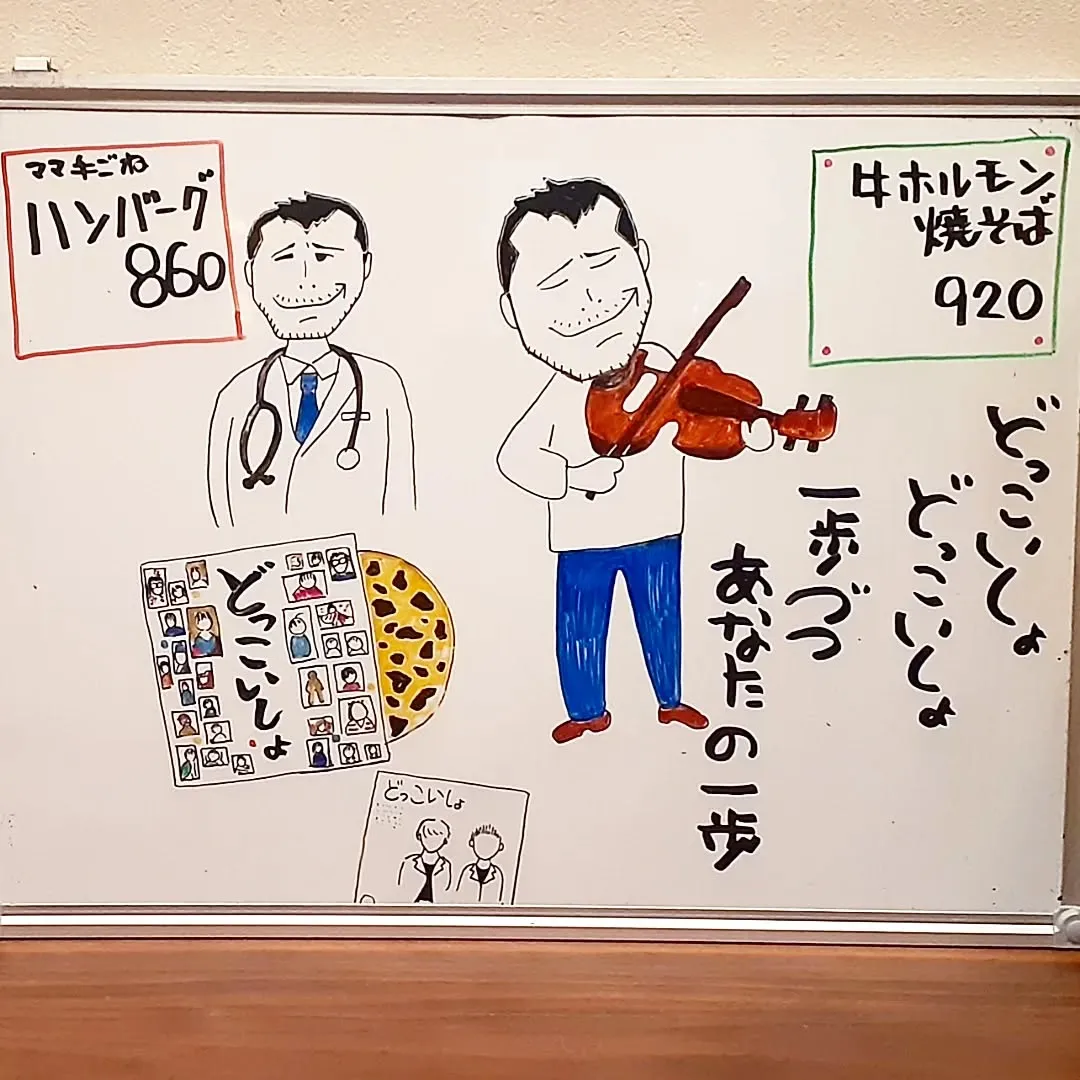 ママ手ごね
ハンバーグ
860
牛ホルモン
焼そば
920
どっこいしょ
どっこいしょ
一歩づつ
あなたの一歩
どっこいしょ
どっこいしょ